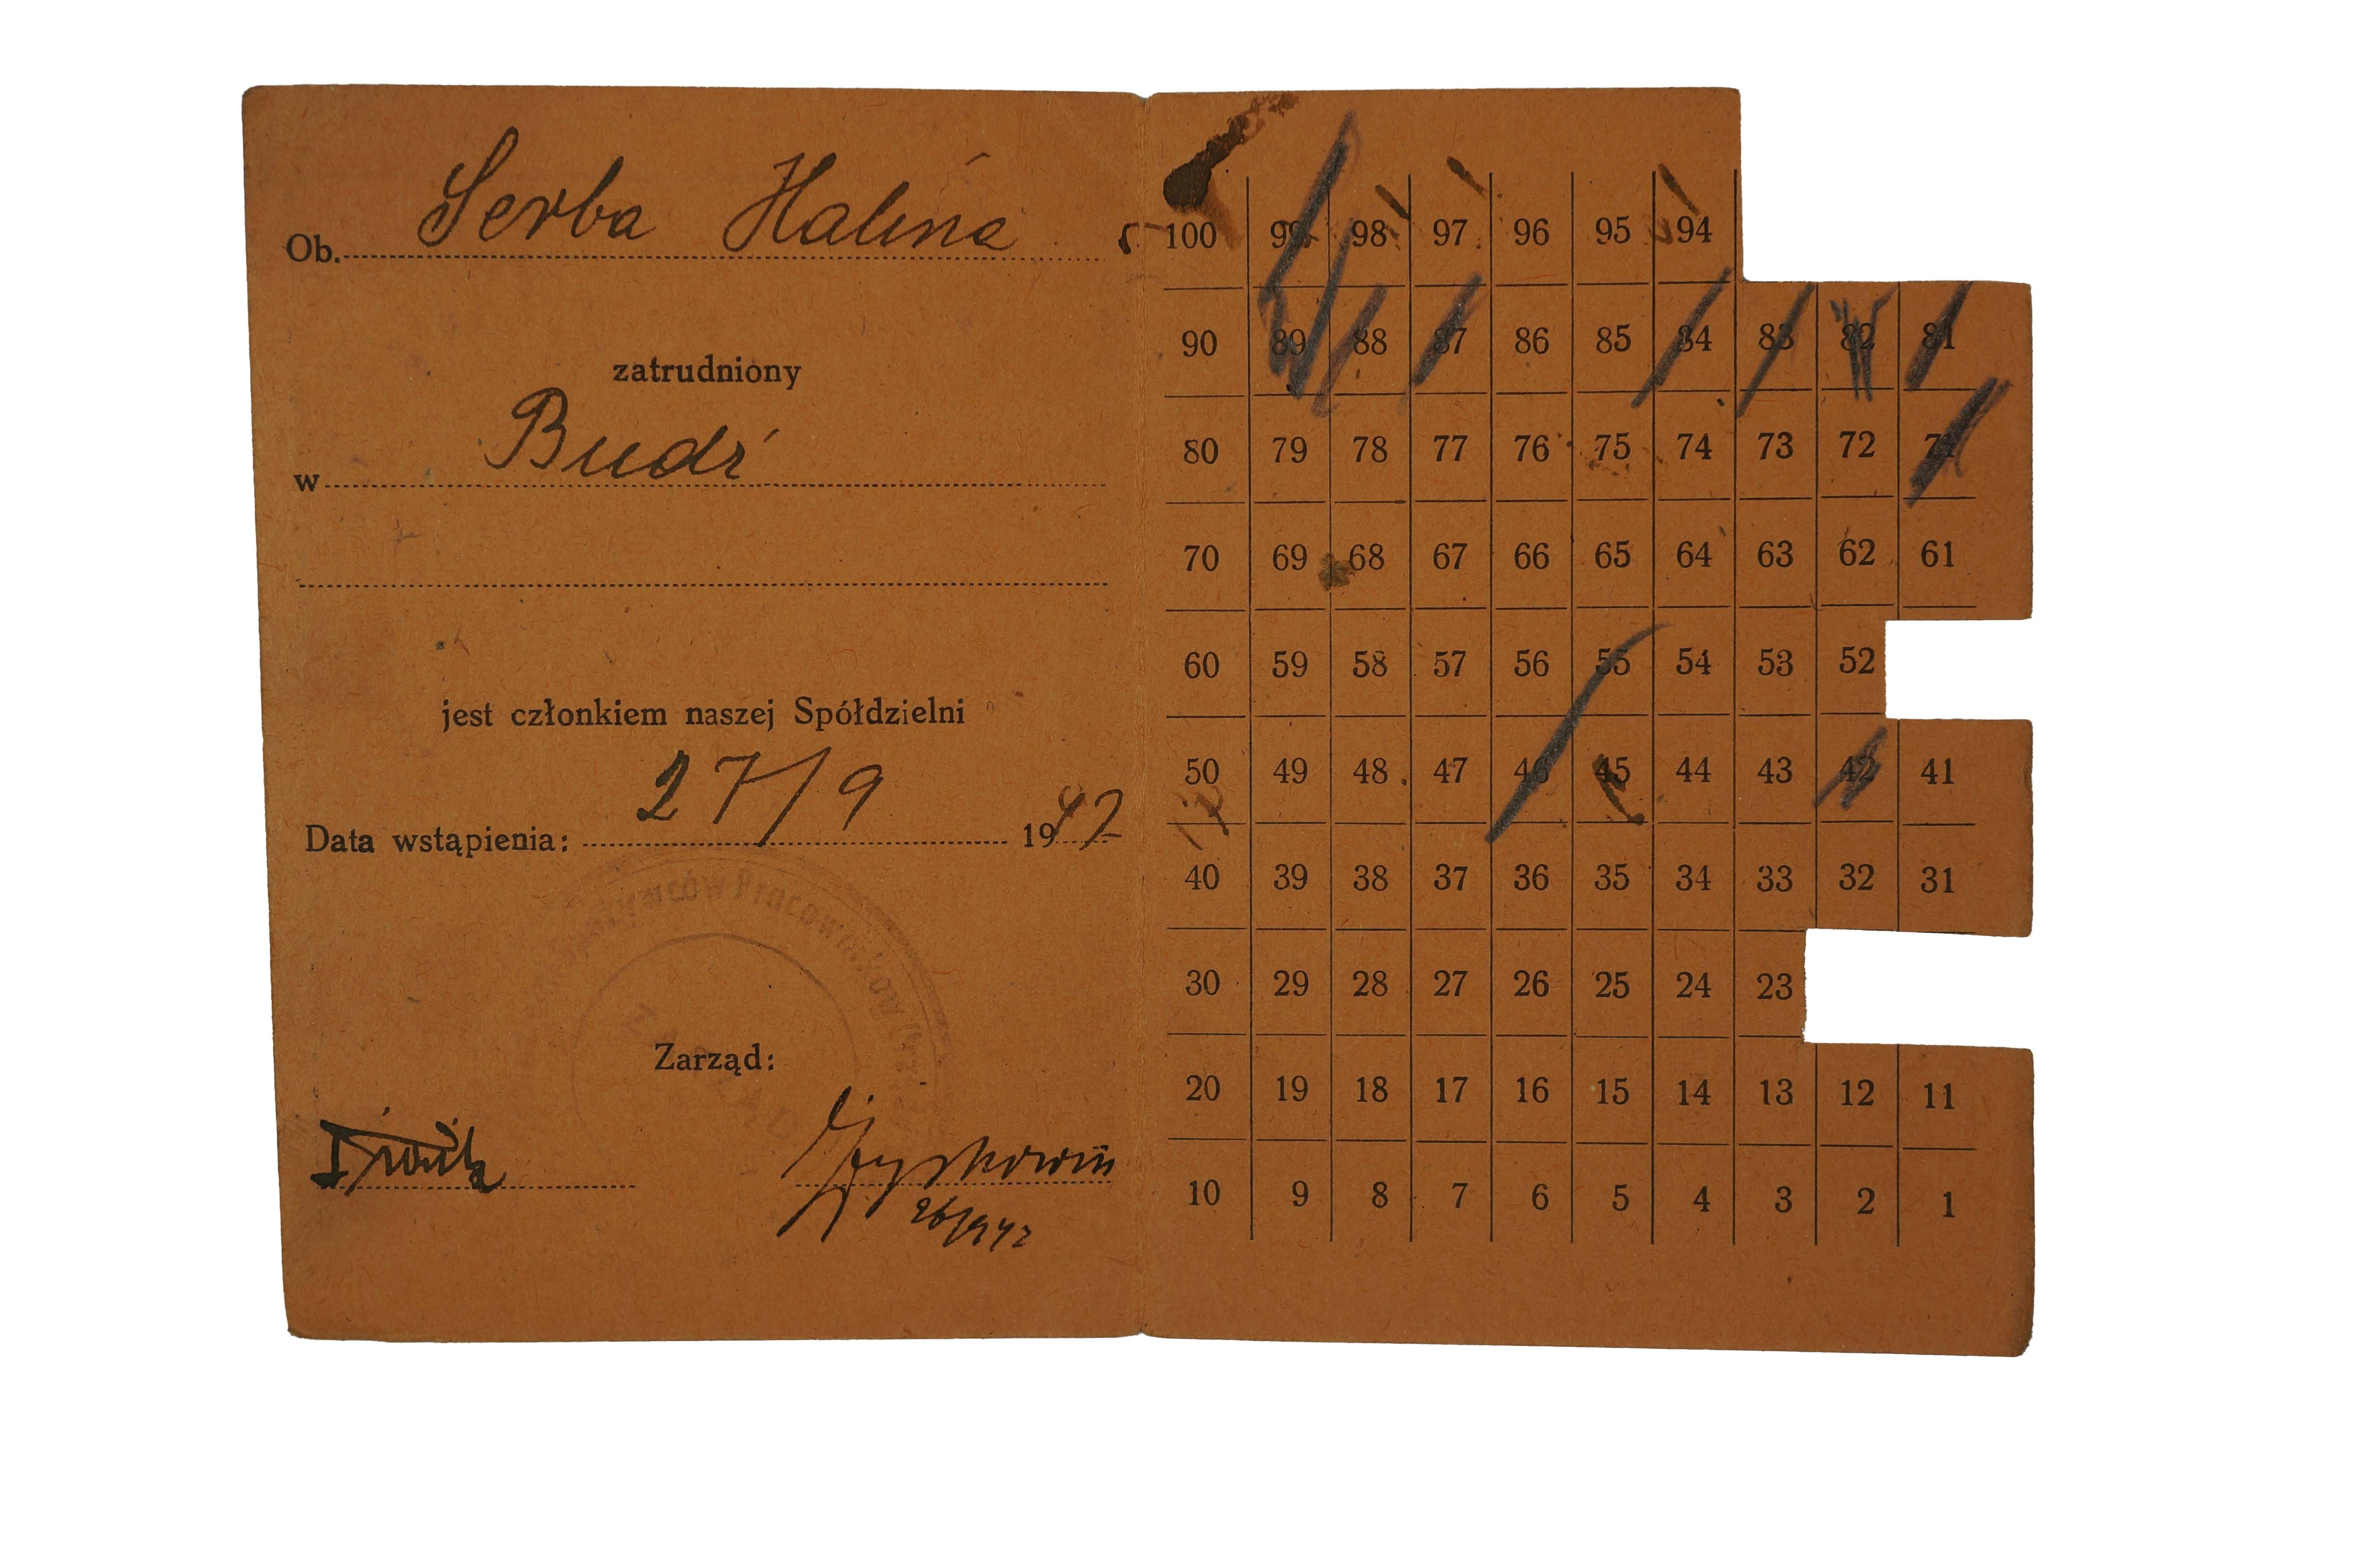 Ob. Serba Halina
zatrudniony
w Budź
jest członkiem naszej Spółdzielni
Data wstąpienia: 27/9 1947
Pracowników
Zarząd:
100 99 98 97 96 95 94
90 89 88 87 86 85 84 83 82 81
80 79 78 77 76 75 74 73 72 71
70 69 68 67 66 65 64 63 62 61
60 59 58 57 56 55 54 53 52
50 49 48 47 46 45 44 43 42 41
40 39 38 37 36 35 34 33 32 31
30 29 28 27 26 25 24 23
20 19 18 17 16 15 14 13 12 11
10 9 8 7 6 5 4 3 2 1